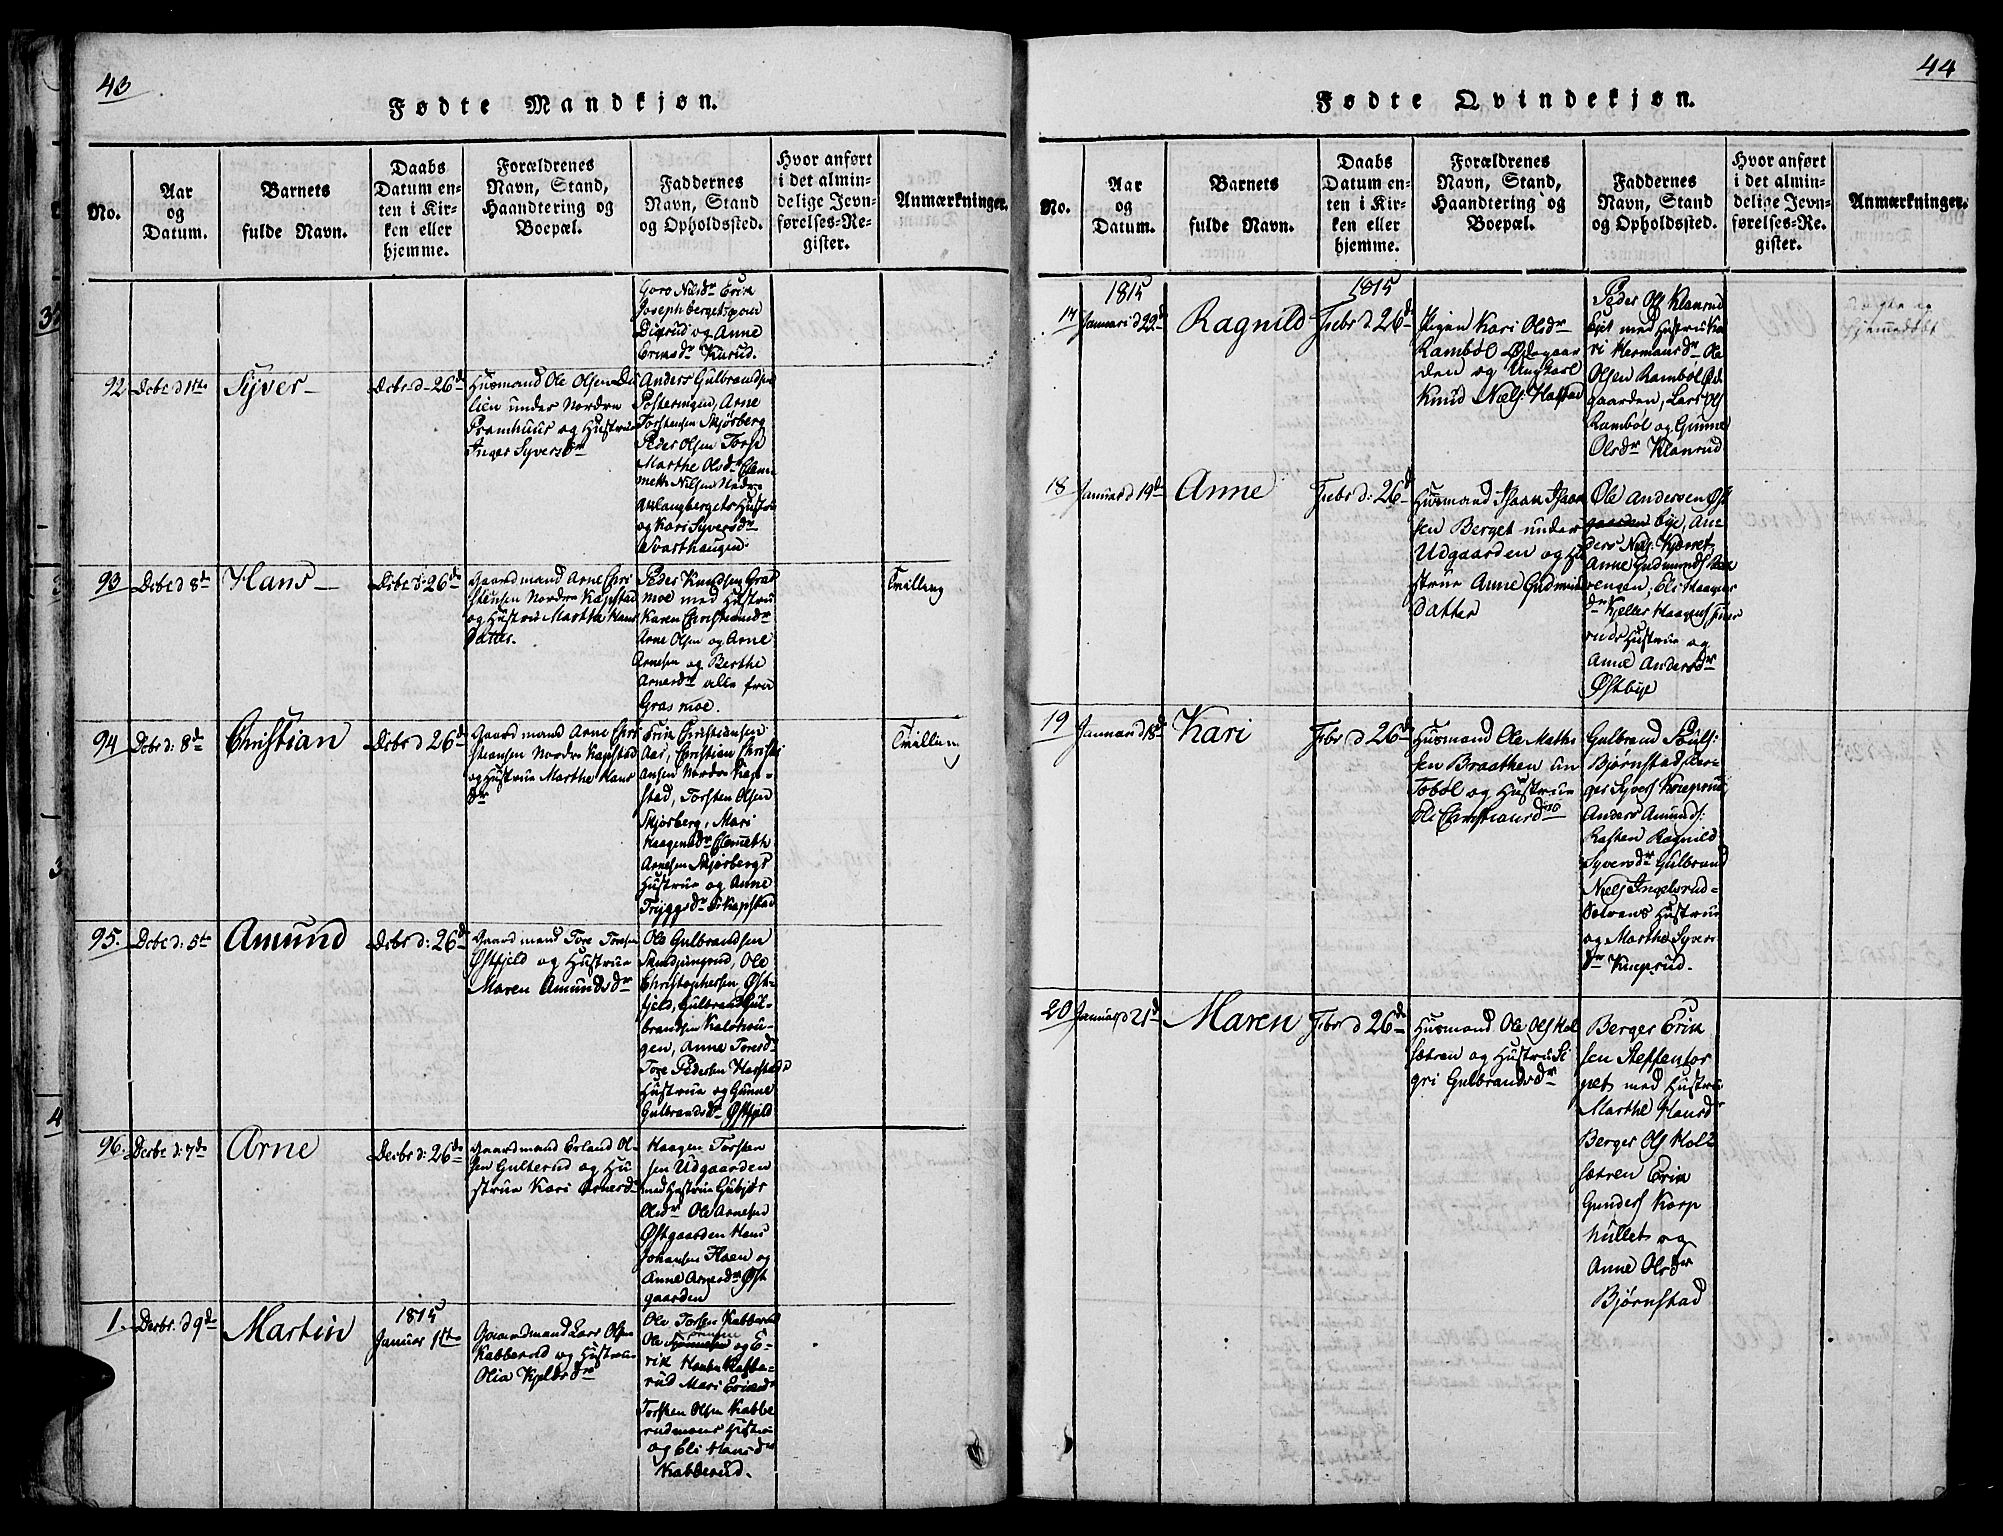 43
Fødte Mandkjøn.
No.
Aar
og
Datum.
Barnets
fulde Navn.
Daabs
Datum en-
ten i Kir-
ken eller
hjemme.
Forældrenes
Navn, Stand,
Haandtering og
Boepæl.
Faddernes
Navn, Stand
og Opholdssted.
Hvor anført
i det almin-
delige Jevn-
førelses-Re-
gister.
Anmærkninger.
Goro Nilsdr Erik
Josephberget
Digrud og Anne
92
Decbr d 1ste
Syver
Decbr d 26d
Husmand Ole Olsen
lien under Nordre
Framhuus og Hustrue
Inger Syversdr
Anders Gulbrandsen
Arne
Torstensen Skjørberg
Peder Olsen
Marthe Olsdr
Hustrue
og Kari Syversdr
Svarthaugen
93
Decbr d 8de
Hans
Decbr d: 26de
Gaardmand Arne Chri
stensen Nordre Kapstad
og Hustrue Marthe Hans
datter.
Peder Knudsen Gras
moe med Hustrue
Karen Christiansdr
Arne Olsen og Arne
Arnesen og Berthe
Arnesdr alle fra
Grasmoe.
Tvilling
94
Decbr d: 8de
Christian
Decbr d 26d
Gaardmand Arne Chri
stiansen Nordre Kapstad
og Hustrue Marthe Hans
dr
Erik Christiansen
Aas, Christian Christi
ansen Nordre Kap-
stad, Torsten Olsen
Skjørberg, Mari
Haagensdr Clemeth
Arnesen Skjørbergs
Hustrue og Anne
Tryggsdr Kapstad
Tvilling
95.
Decbr d: 5te
Amund
Decbr d: 26d
Gaardmand Tore Toresen
Østfjeld og Hustrue
Maren Amundsdr
Ole Gulbrandsen
Ole
Christophersen Øst-
fjeld, Gulbrand Gul-
brandsen Kalshou-
gen, Anne Toresdr
Tore Pedersen
Hustrue og Gunne
Gulbrandsdr Østfjeld
96.
Decbr d: 7de
Arne
Decbr d: 26de
Gaardmand Erland Ol-
sen Gulterud og Hu
strue Kari Arnesdr
Haagen Torsten
sen Udgaarden
med Hustrue Gubjør
Olsdr Ole Arnesen
Østgaarden Hans
Johansen Haen og
Anne Arnesdr Øst
gaarden
1.
Decbr. d 9de
Martin
1815
Januar 1ste
Gaardmand Lars Olsen
Kabberud og Hustrue
Olia Kjeldsdr
Ole Torsen Kabberud
Ole
og E-
rik Hansen Kabbe-
rud Mari Eriksdr
Torsten Olsen Kabbe
rudmoens Hustrue
og Eli Hansdr
Kabberud.
44
Fødte Qvindekjøn.
No.
Aar
og
Datum.
Barnets
fulde Navn.
Daabs
Datum en-
ten i Kir-
ken eller
hjemme.
Forældrenes
Navn, Stand,
Haandtering og
Boepæl.
Faddernes
Navn, Stand
og Opholdssted.
Hvor anført
i det almin-
delige Jevn-
førelses-Re-
gister.
Anmærkninger.
17
1815
Januari d 22d
Ragnild
1815
Febr d 26d
Pigen Kari Olsdr
Rambøl Ødegaar
den og Ungkarl
Knud Næls: Hafstad
Peder Ols Klanrud
Eje med Hustrue Ka
ri Hermansdr Ole
Olsen Rambøl Øde
gaarden, Lars Ols
Rambøl og Gunne
Olsdr Klanrud
18
Januar d 19d
Anne
Febr d: 26d
Husmand Isaac Isaac
sen Berget under
Udgaarden og Hu
strue Anne Gudmunds
datter
Ole Andersen Øst
gaarden bye, An-
ders Niels: Kjernet
Anne Gudmundsdr
vengen, Eli Haagens
dr Kjelles Haagens
ruds Hustrue og
Anne Andersdr
Østbye
19
Januar d 18d
Kari
Febr d 26d
Husmand Ole Mathi
sen Braathen un
Tobøl og Hustrue
Eli Christiansdr
Gulbrand Pouls:
Bjørnstad Ber-
ger Syvers Kneprud
Anders Amunds:
Rasten Ragnild
Syversdr Gulbrand
Niels Ingelsrud-
Hustrue
og Marthe Syvers
dr Kneprud.
20
Januar d 21d
Maren
Febr d 26d
Husmand Ole Ols Hol
sætren og Hustrue Si
gri Gulbrandsdr
Berger Erik
sen Steffentor
pet med Hustrue
Marthe Hansdr
Berger Ols Hol
sætren Erik
Gunders Korp
hullet og
Anne Olsdr
Bjørnstad